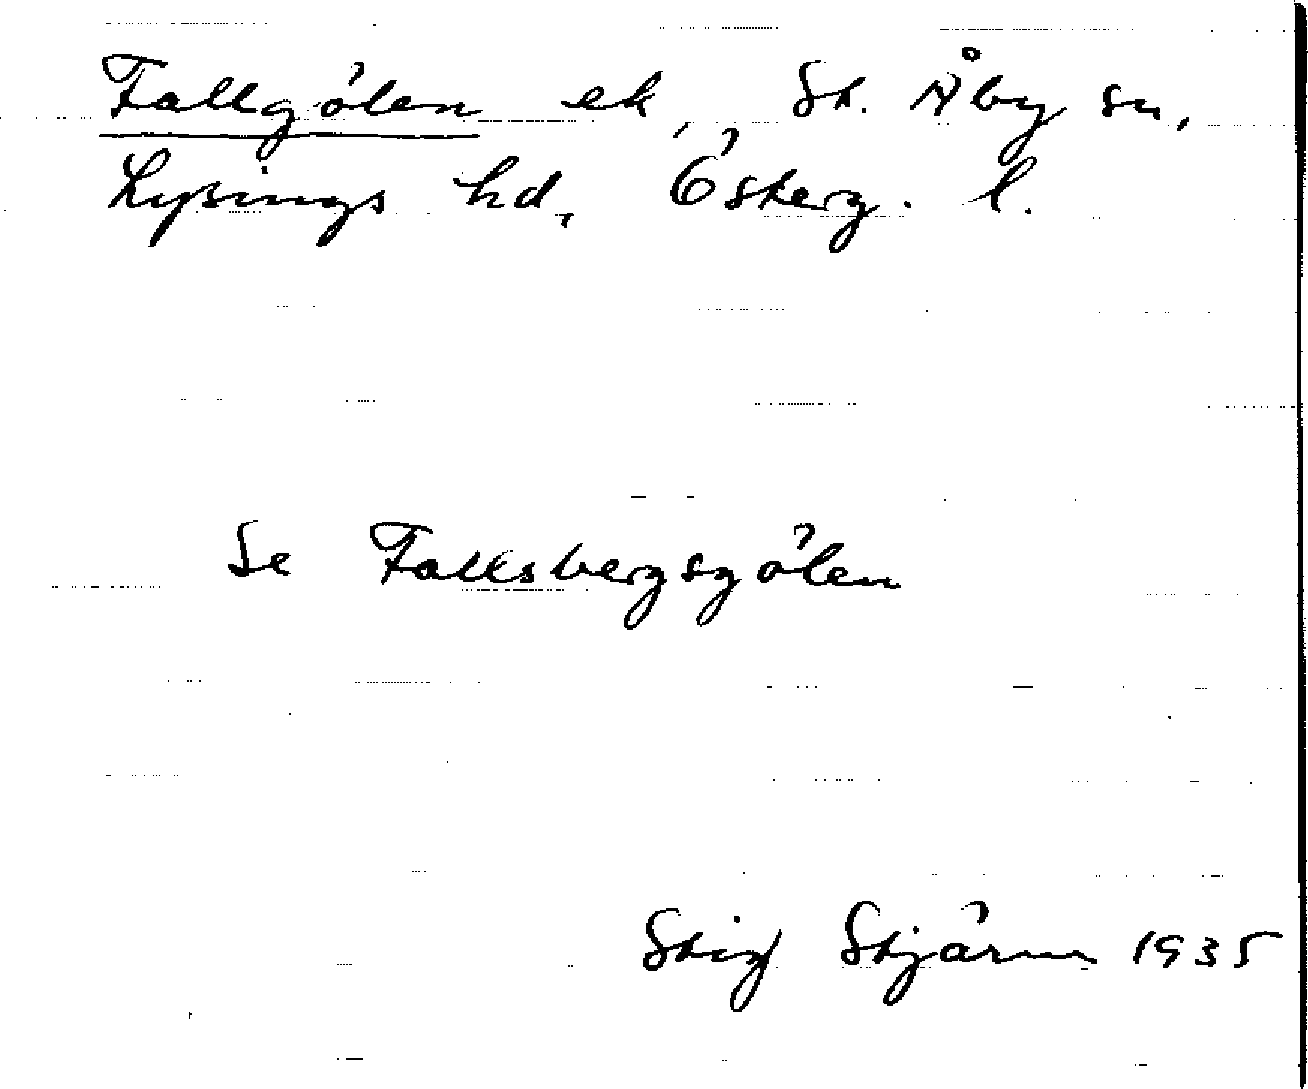 Fallgölen ek, St. Åby sn,
Lysings hd, Österg. l.
Se Fallsbergsgölen
Stig Stjärne 1935